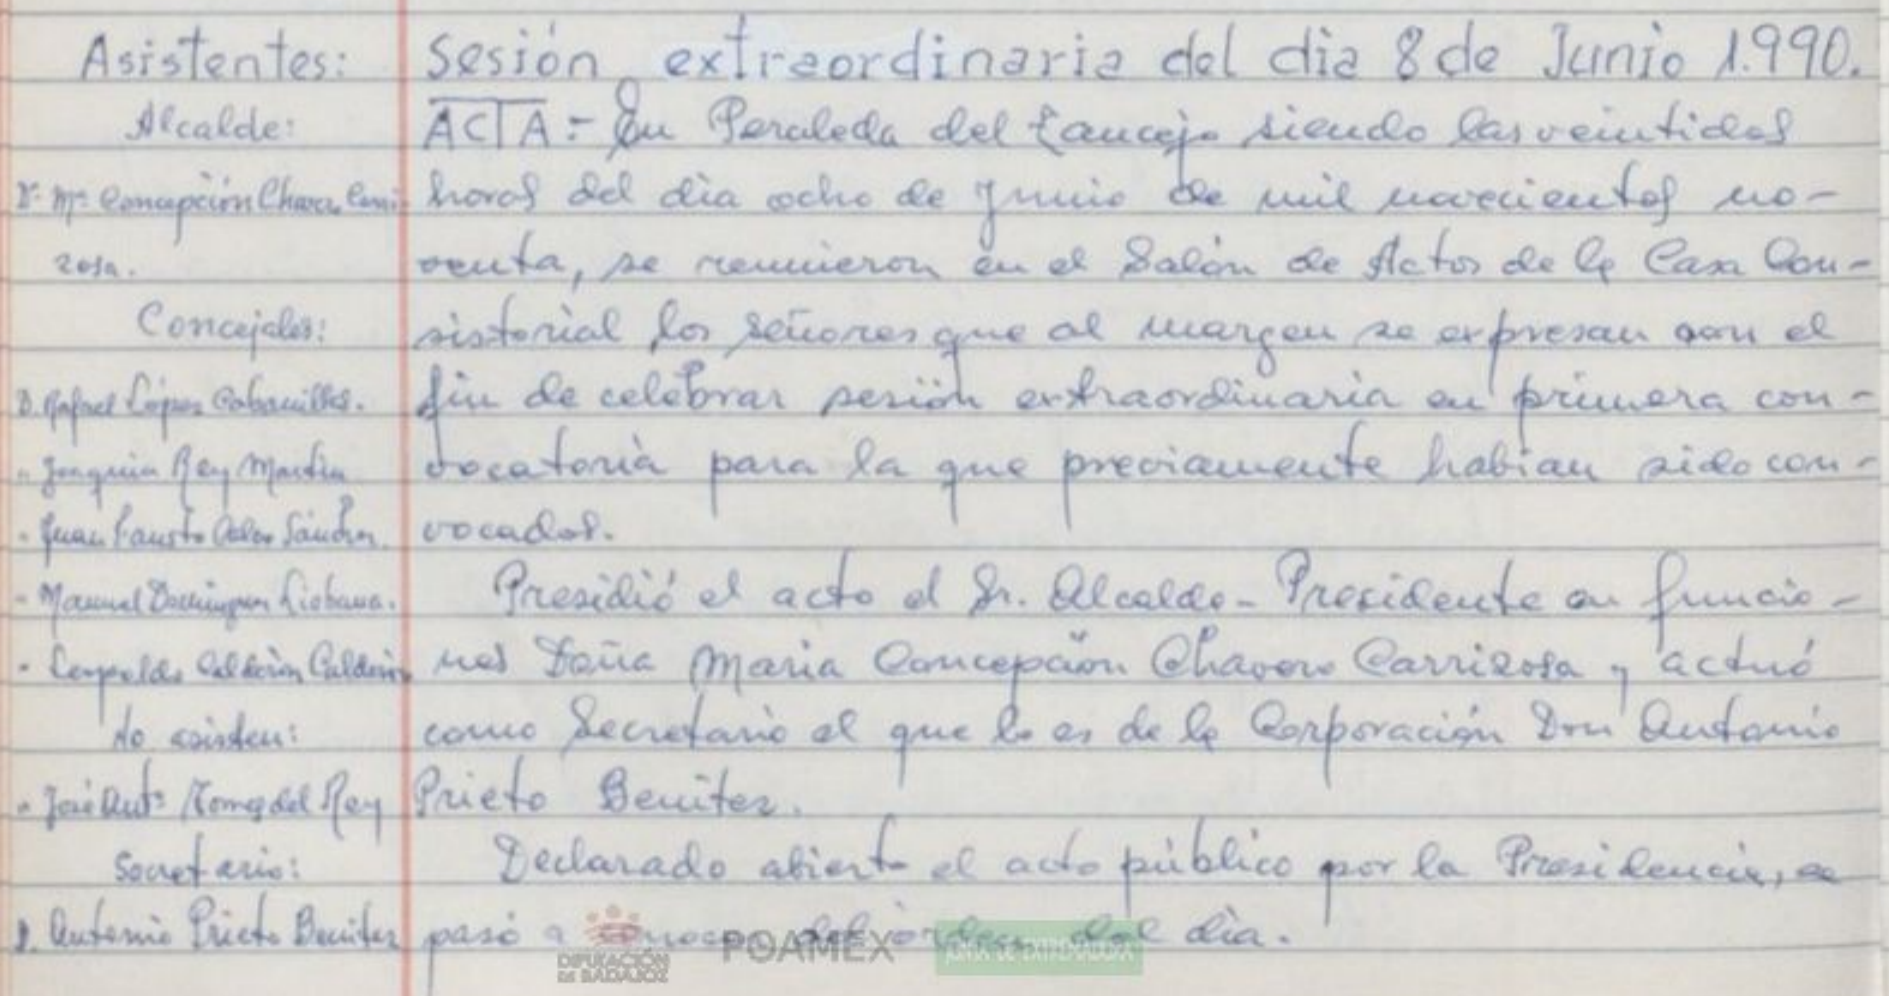 Asistentes:
Alcalde:
Dª. Mª Concepción Chavero Carri-
zosa.
Concejales:
D. Rafael López Cabanillas.
" Joaquin Rey Martin
" Juan Fausto Sánchez
" Manuel Dominguez Liebana.
" Leopoldo Calderón Calderón
No asisten:
" José Antº Torres del Rey
Secretario:
D. Antonio Prieto Benitez
Sesión extraordinaria del dia 8 de Junio 1.990.
ACTA:- En Peraleda del Zaucejo siendo las veintidos
horas del dia ocho de Junio de mil novecientos no-
venta, se reunieron en el Salón de Actos de la Casa Con-
sistorial los señores que al margen se expresan con el
fin de celebrar sesión extraordinaria en primera con-
vocatoria para la que previamente habian sido con-
vocados.
Presidió el acto el Sr. Alcalde-Presidente en funcio-
nes Doña Maria Concepción Chavero Carrizosa y actuó
como Secretario el que lo es de la Corporación Don Antonio
Prieto Benitez.
Declarado abierto el acto público por la Presidencia, se
pasó a conocer del orden del dia.
DIPUTACIÓN
DE BADAJOZ
POAMEX
JUNTA DE EXTREMADURA